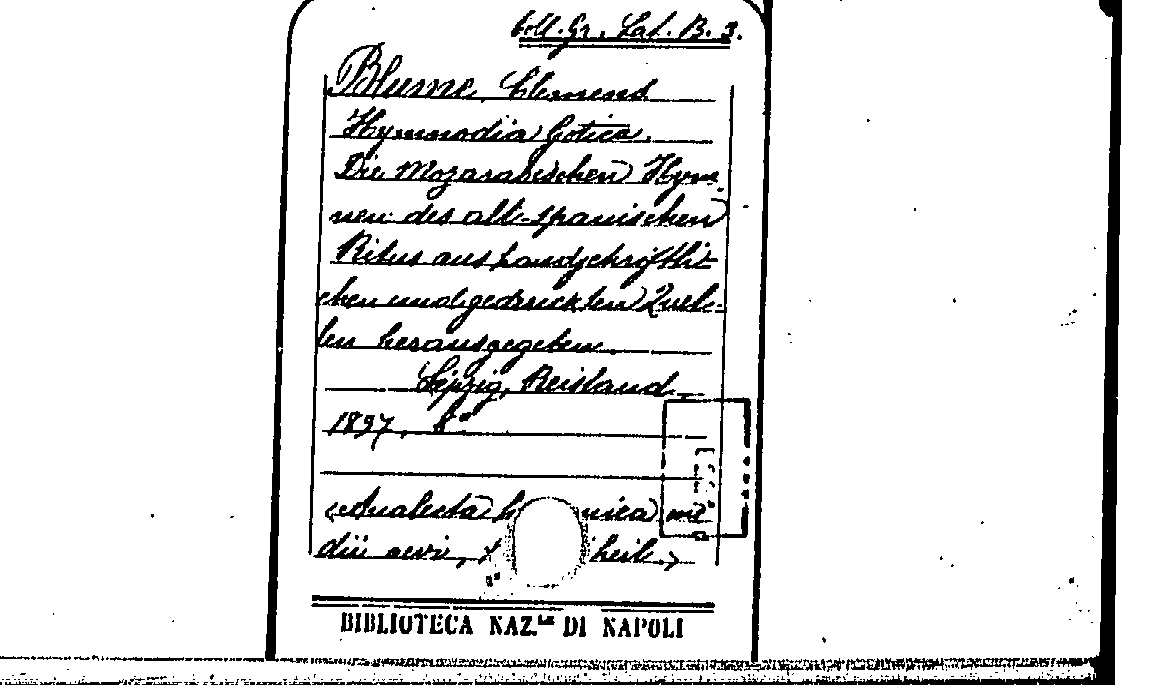 Coll. Gr. Lat. B. 3.
Blume, Clemens
Hymnodia Gotica.
Die Mozarabischen Hym-
nen des alt-spanischen
Ritus aus handschriftli-
chen und gedruckten Quel-
len herausgegeben.
Leipzig, Reisland
1897, 8°
(Analecta h nica me
dii aevi, heil.)
BIBLIOTECA NAZ.LE DI NAPOLI